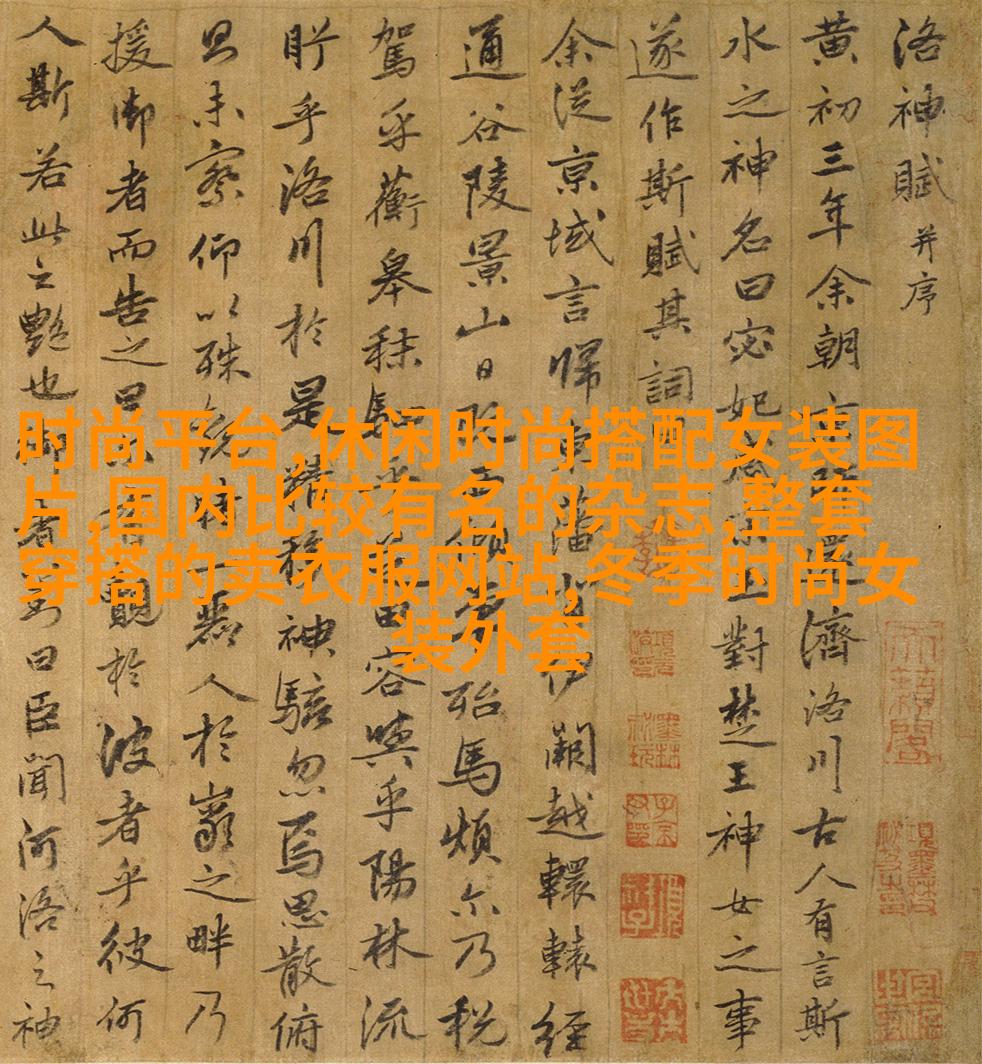 洛神賦 并序
黄初三年余朝京師還濟洛川古人有言斯
水之神名曰宓妃感宋玉對楚王神女之事
遂作斯賦其詞
余從京域言歸東藩背伊闕越轘轅經
通谷陵景山日既西傾車殆馬煩尒乃税
駕乎蘅皋秣駟乎芝田容與乎陽林流
眄乎洛川於是精移神駭忽焉思散俯
則未察仰以殊觀一麗人於巖之畔乃
援御者而告之曰尒有覿於彼者乎彼何
人斯若此之艷也御者對曰臣聞河洛之神
时尚平台,休闲时尚搭配女装图
片,国内比较有名的杂志,整套
穿搭的卖衣服网站,冬季时尚女
装外套